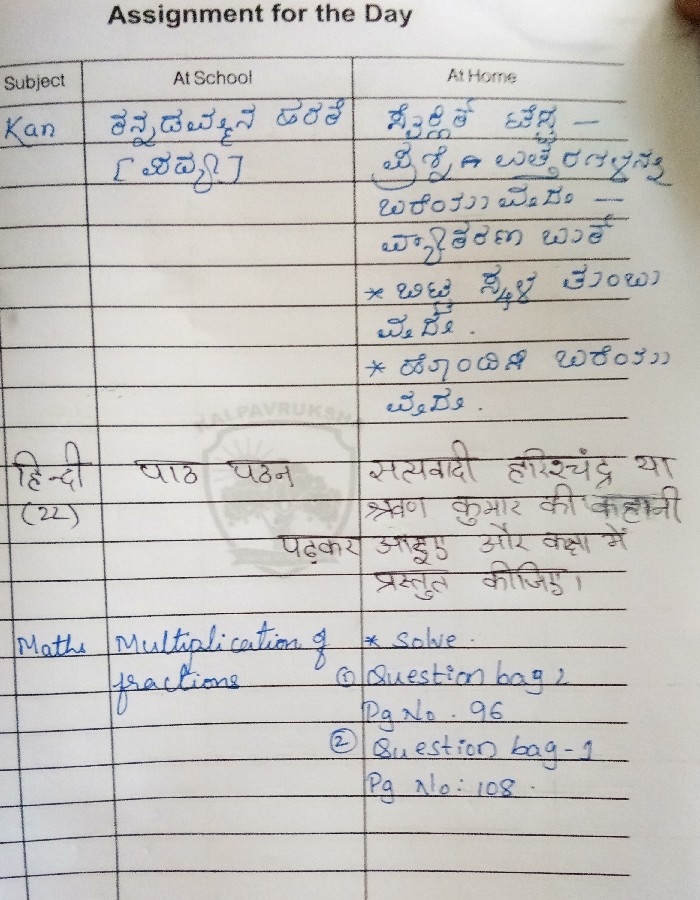 Assignment for the Day
Subject At School At Home
Kan ಕನ್ನಡಮ್ಮನ ಹರಕೆ ಸ್ವರಚಿತ ಟೆಸ್ಟ್ –
[ ಪದ್ಯ ] ಪ್ರಶ್ನೆ ಉತ್ತರಗಳನ್ನು
ಬರೆಯುವುದು –
ವ್ಯಾಕರಣ ಭಾಗ
* ಬಿಟ್ಟ ಸ್ಥಳ ತುಂಬು
ವುದು .
* ಹೊಂದಿಸಿ ಬರೆಯು
ವುದು .
KALPAVRUKSHA
हिन्दी पाठ पठन सत्यवादी हरिश्चंद्र या
(22) श्रवण कुमार की कहानी
पढ़कर आइए और कक्षा में
प्रस्तुत कीजिए।
Maths Multiplication of * Solve .
fractions ① Question bag 2
Pg No . 96
② Question bag - 1
Pg No : 108 .